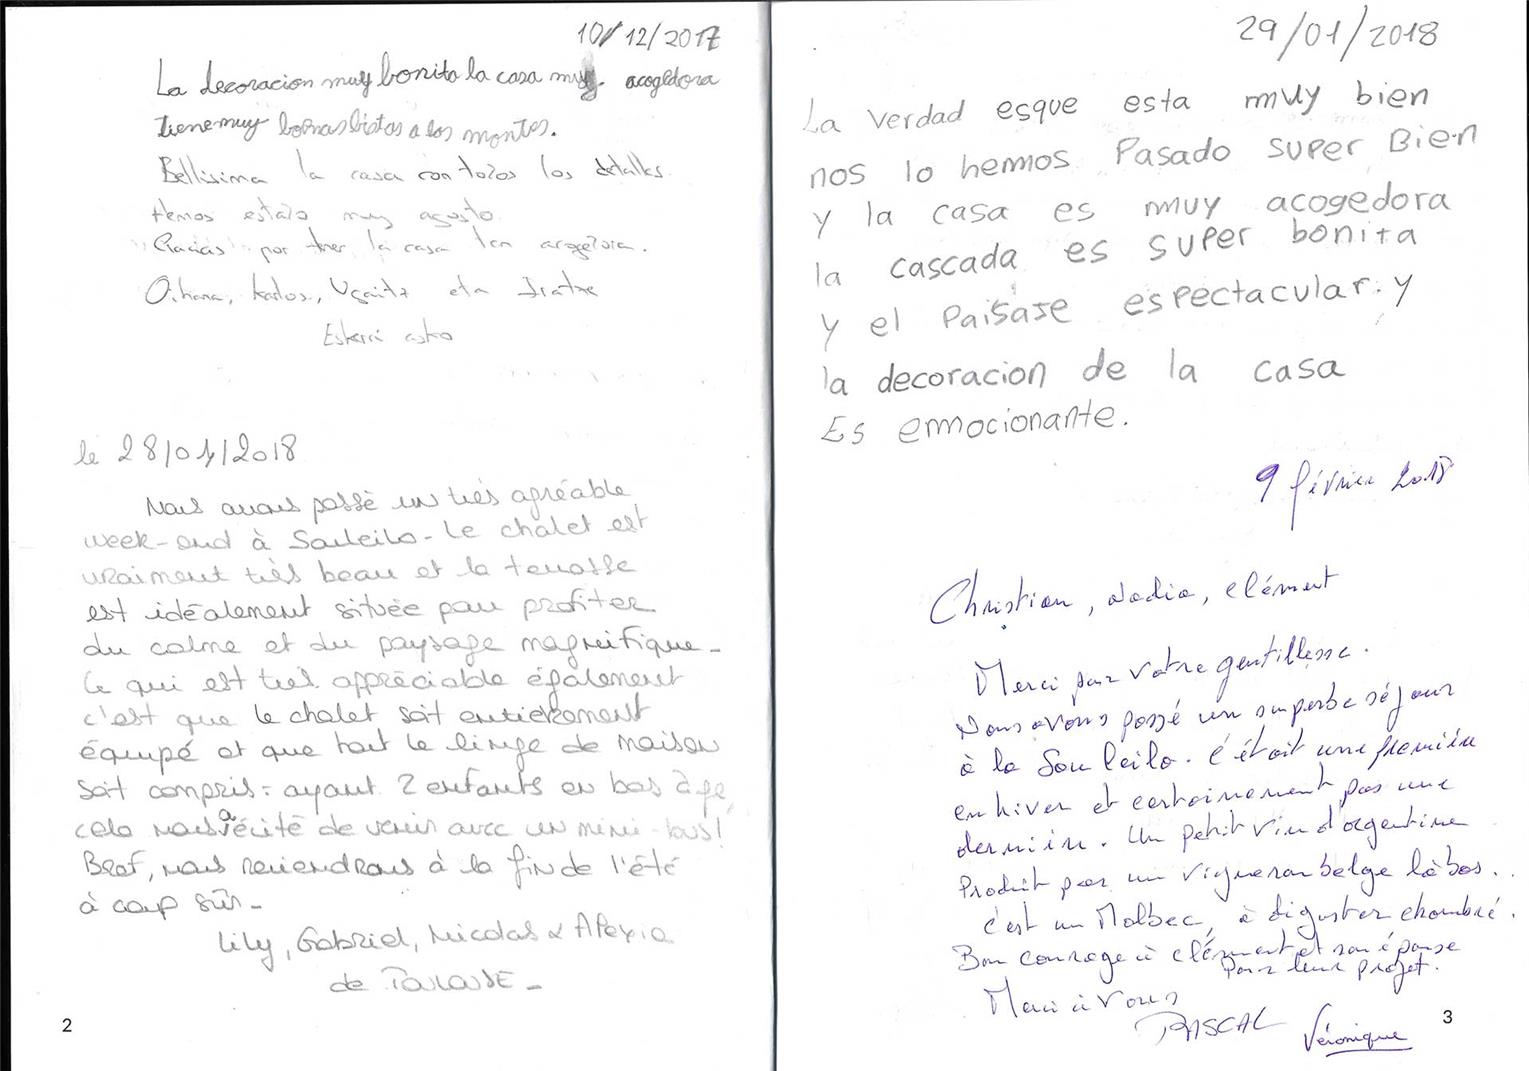 10/12/2017
La decoracion muy bonita la casa muy acogedora
tiene muy bonas bistas a los montes.
Bellisima la casa con todos los detalles.
Hemos estado muy agusto.
Gracias por tner la casa tan acogedora.
Oihana, Karlos, Ugaitz eta Iratxe
Eskerri asko
le 28/01/2018
Nous avons passé un très agréable
week-end à Souleilo - Le chalet est
vraiment très beau et la terrasse
est idéalement située pour profiter
du calme et du paysage magnifique -
Ce qui est très appréciable également
c'est que le chalet soit entièrement
équipé et que tout le linge de maison
soit compris : ayant 2 enfants en bas âge,
cela nous a évité de venir avec un mini-bus!
Bref, nous reviendrons à la fin de l'été
à coup sûr -
Lily, Gabriel, Nicolas & Alexia
de Toulouse -
2
29/01/2018
La verdad esque esta muy bien
nos lo hemos Pasado super Bien
y la casa es muy acogedora
la cascada es super bonita
y el Paisase espectacular. y
la decoracion de la casa
Es emocionante.
9 février 2018
Christian, Nadia, Clément
Merci pour votre gentillesse.
Nous avons passé un superbe séjour
à la Souleilo. C'était une première
en hiver et certainement pas une
dernière. Un petit vin d'argentine
Produit par un vigneron belge làbas..
c'est un Malbec, à diguster chambré.
Bon courage à Clément et son épouse
pour leur projet.
Merci à vous
PASCAL Véronique
3